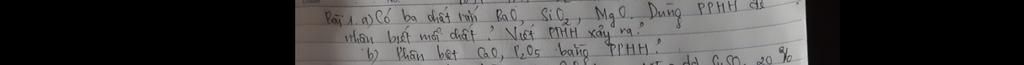 Bài 1. a) Có ba chất rắn BaO, SiO2, MgO. Dùng PPHH để
nhận biết mỗi chất? Viết PTHH xảy ra?
b) Phân biệt CaO, P2O5 bằng PPHH?
dd 20 %